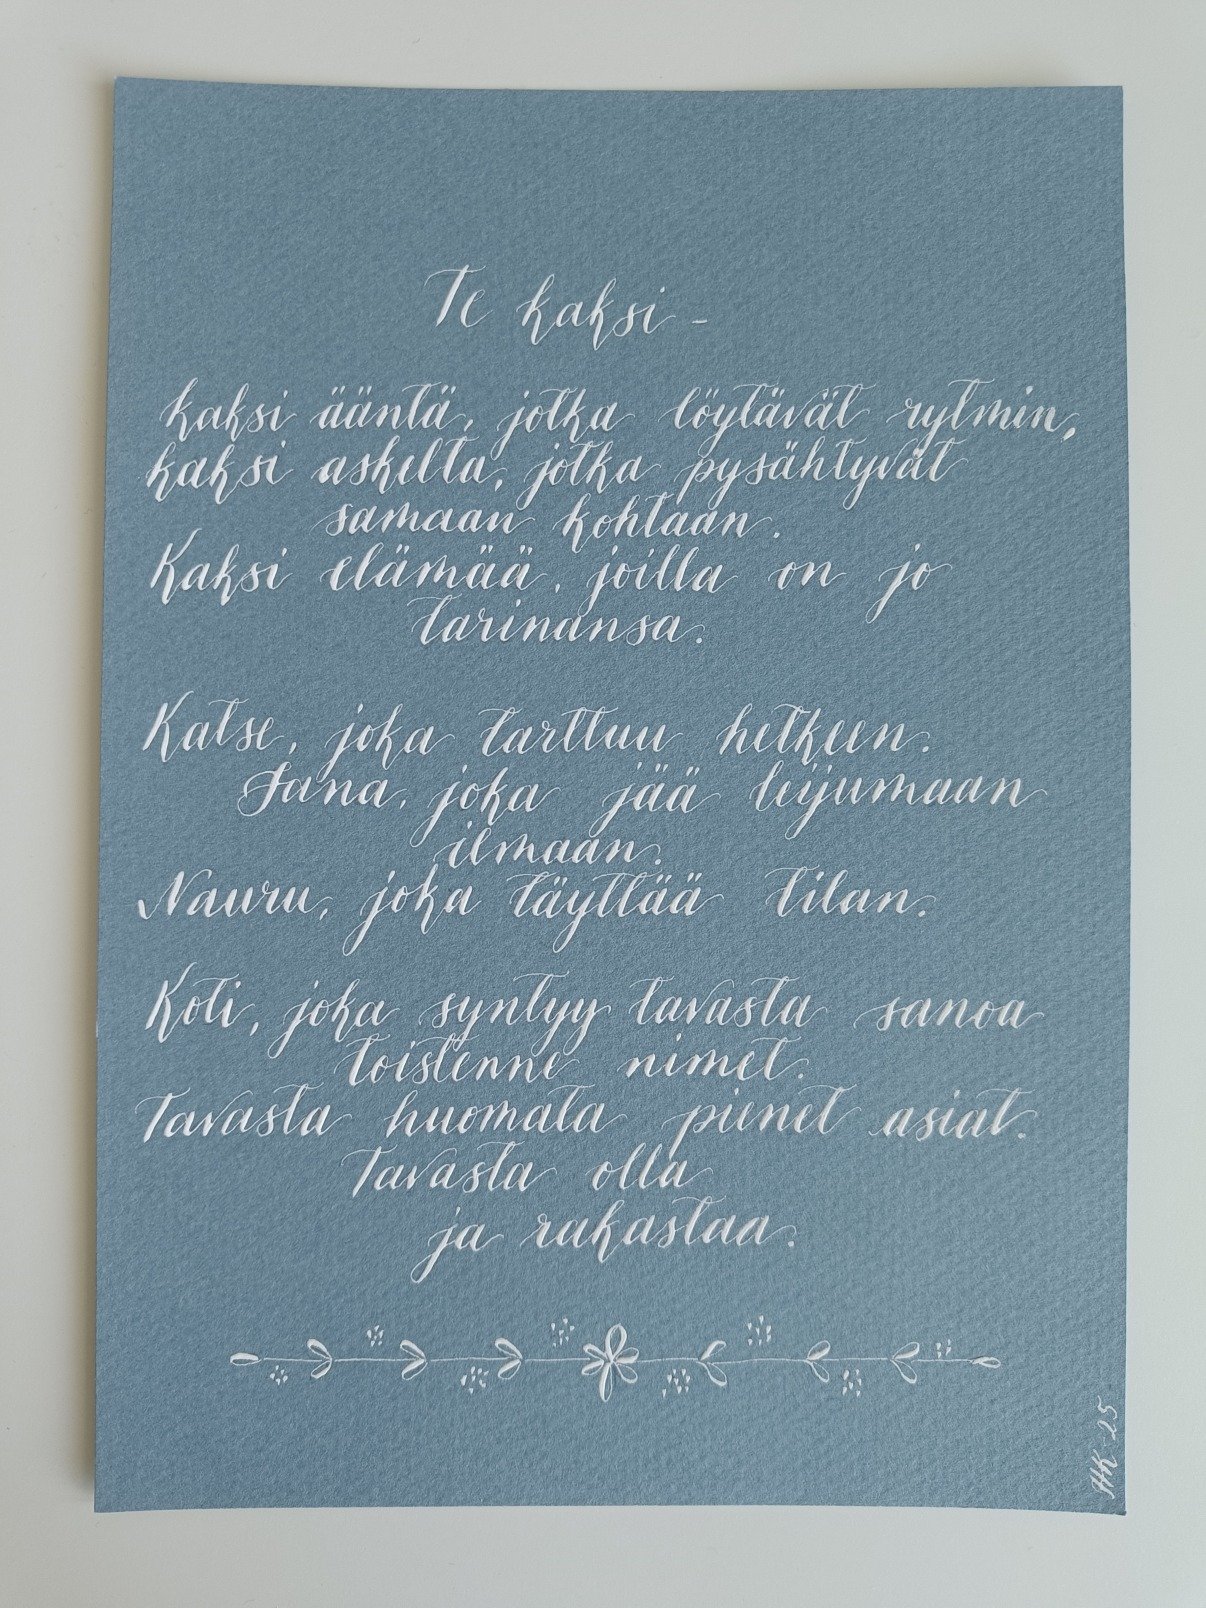 Te kaksi -
kaksi ääntä, jotka löytävät rytmin,
kaksi askelta, jotka pysähtyvät
samaan kohtaan.
Kaksi elämää, joilla on jo
tarinansa.
Katse, joka tarttuu hetkeen.
Sana, joka jää leijumaan
ilmaan.
Nauru, joka täyttää tilan.
Koti, joka syntyy tavasta sanoa
toistenne nimet.
Tavasta huomata pienet asiat.
Tavasta olla
ja rakastaa.
HK -25